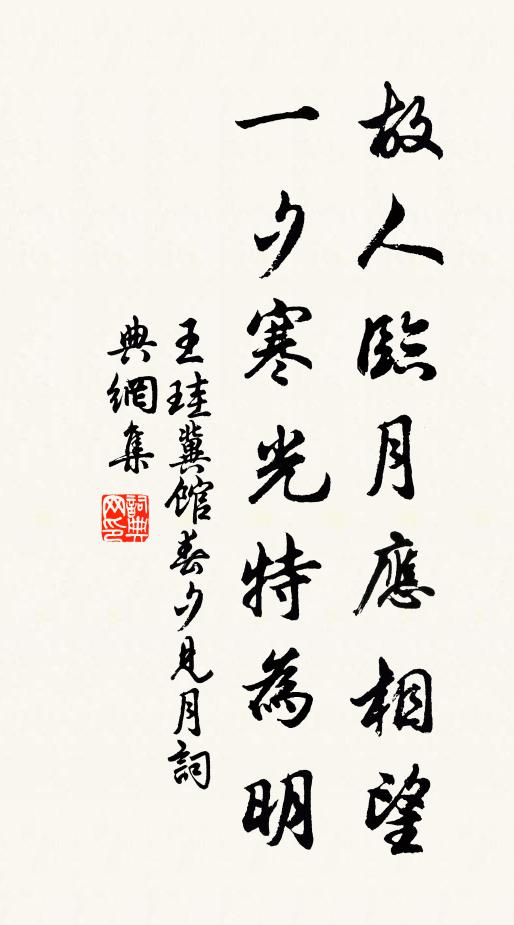 故人臨月應相望
一夕寒光特為明
王珪冀館春夕見月詞
典網集
詞典网印